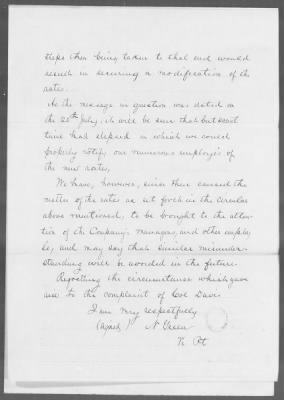 steps then being taken to that end would
result in securing a modification of the
rates.
As the message in question was dated on
the 20th July, it will be seen that but scant
time had elapsed in which we could
properly notify our numerous employés of
the new rates,
We have, however, since then caused the
matter of the rates as set forth in the circular
above mentioned, to be brought to the atten-
tion of the Company's managers, and other employ-
és, and may say that similar misunder-
standing will be avoided in the future.
Regretting the circumstance which gave
rise to the complaint of Col Dave
I am Very respectfully
(signed) N Green
Pt